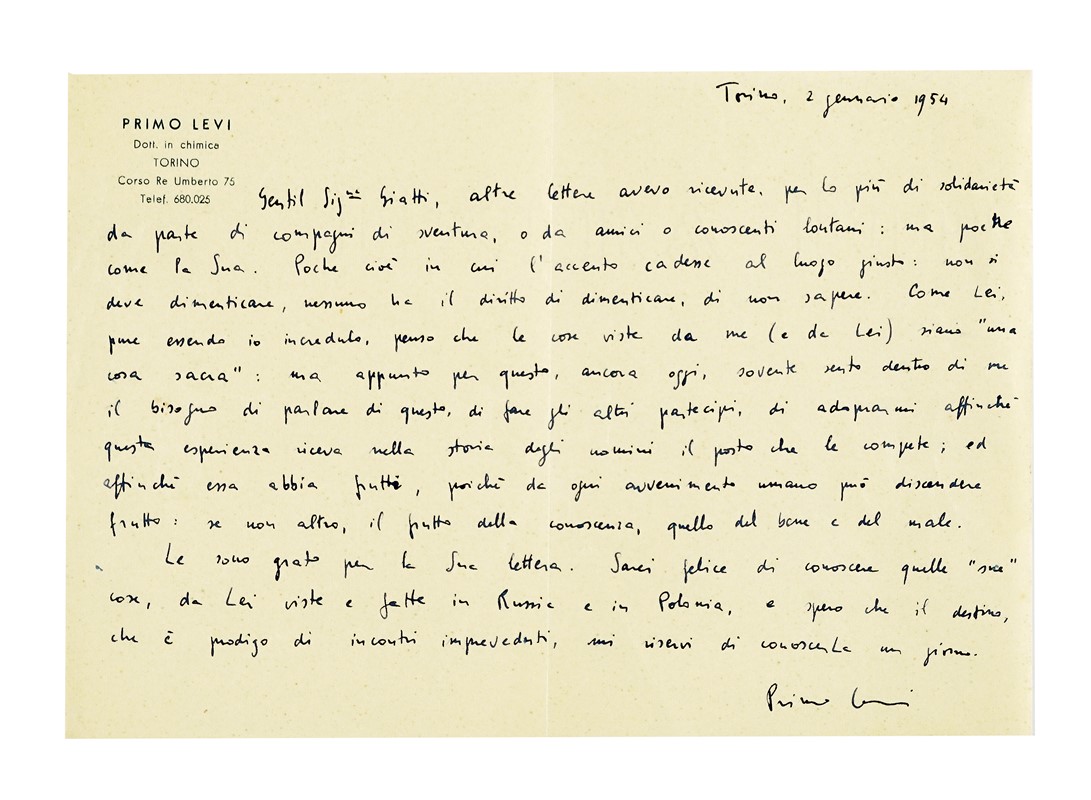 Torino, 2 gennaio 1954
PRIMO LEVI
Dott. in chimica
TORINO
Corso Re Umberto 75
Telef. 680.025
Gentil Sig.na Giatti, altre lettere avevo ricevute, per lo più di solidarietà
da parte di compagni di sventura, o da amici o conoscenti lontani: ma poche
come la Sua. Poche cioè in cui l'accento cadesse al luogo giusto: non si
deve dimenticare, nessuno ha il diritto di dimenticare, di non sapere. Come Lei,
pure essendo io incredulo, penso che le cose viste da me (e da Lei) siano "una
cosa sacra": ma appunto per questo, ancora oggi, sovente sento dentro di me
il bisogno di parlare di questo, di fare gli altri partecipi, di adoprarmi affinché
questa esperienza riceva nella storia degli uomini il posto che le compete; ed
affinché essa abbia frutti, poiché da ogni avvenimento umano può discendere
frutto: se non altro, il frutto della conoscenza, quello del bene e del male.
Le sono grato per la Sua lettera. Sarei felice di conoscere quelle "sue"
cose, da Lei viste e fatte in Russia e in Polonia, e spero che il destino,
che è prodigo di incontri impreveduti, mi riservi di conoscerLa un giorno.
Primo Levi